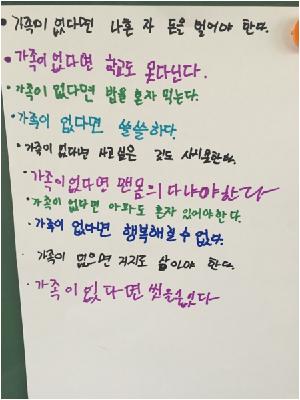 가족이 없다면 나혼 자 돈을 벌어야 한다.
가족이 없다면 학교도 못다닌다.
가족이 없다면 밥을 혼자 먹는다.
가족이 없다면 쓸쓸하다.
가족이 없다면 사고싶은 것도 사지못한다.
가족이 없다면 맨몸의 다녀야한다
가족이 없다면 아파도 혼자 있어야한다.
가족이 없다면 행복해질수 없다.
가족이 없으면 거지로 살아야 한다.
가족이 없다면 씻을수없다